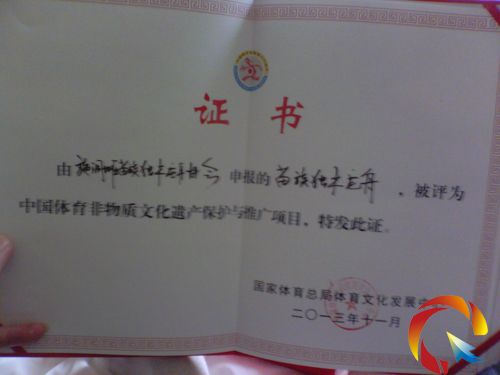 证书
由 申报的苗族独木龙舟，被评为
中国体育非物质文化遗产保护与推广项目，特发此证。
国家体育总局体育文化发展中
二〇一三年十一月